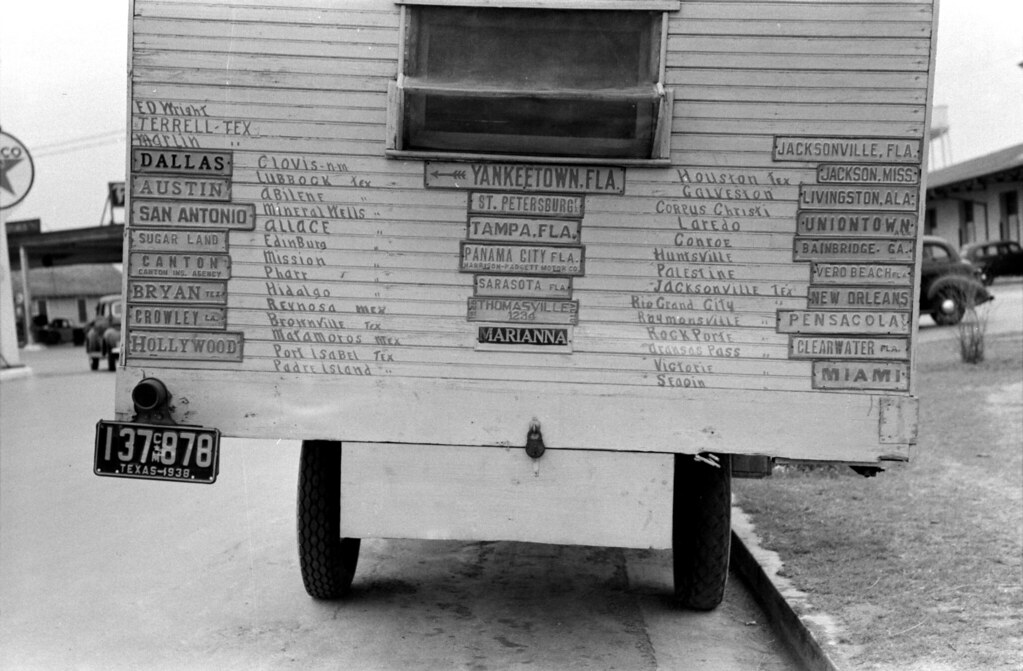 CO
ED Wright
TERRELL-TEX
Marlin
DALLAS
AUSTIN
SAN ANTONIO
SUGAR LAND
CANTON
CANTON INS. AGENCY
BRYAN TEX
CROWLEY LA.
HOLLYWOOD
Clovis-nm
Lubbock Tex
abilene "
Mineral Wells "
allace "
Edinburg "
Mission "
Pharr "
Hidalgo "
Reynosa mex
Brownville Tex
Matamoros mex
Port Isabel Tex
Padre Island "
YANKEETOWN.FLA.
ST. PETERSBURG
TAMPA.FLA.
PANAMA CITY FLA.
SARASOTA FLA.
THOMASVILLE
1234
MARIANNA
Houston Tex
Galveston "
Corpus Christi "
Laredo "
Conroe "
Huntsville "
Palestine "
Jacksonville Tex
Rio Grand City "
Raymonsville "
Rock Porte "
aransas Pass "
Victorie "
Seguin "
JACKSONVILLE, FLA.
JACKSON, MISS.
LIVINGSTON, ALA.
UNIONTOWN.
BAINBRIDGE- GA.
VERO BEACH FLA.
NEW ORLEANS
PENSACOLA
CLEARWATER FLA.
MIAMI
137 C&M 878
TEXAS-1938